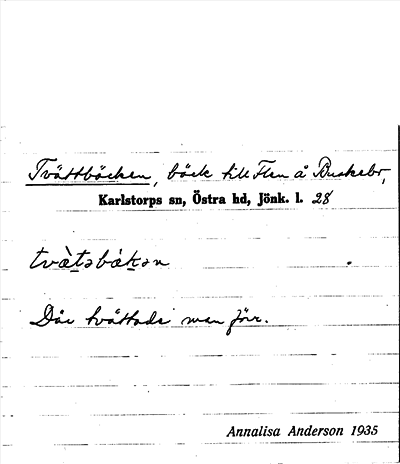 Tvättbäcken, bäck till Flen å Buskebr,
Karlstorps sn, Östra hd, Jönk. l. 28
tvæ̀t̠əbæk̠ən
Där tvättade man förr.
Annalisa Anderson 1935